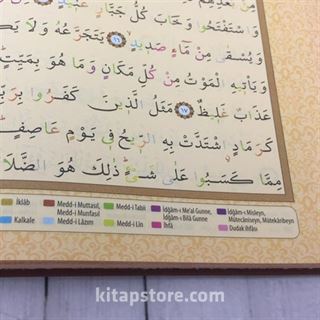 وَاسْتَفْتَحُوا وَخَابَ كُلُّ جَبَّارٍ عَنٖيدٍ
وَيُسْقٰى مِنْ مَٓاءٍ صَدٖيدٍ ﴿١٦﴾ يَتَجَرَّعُهُ وَلَا
وَيَأْتٖيهِ الْمَوْتُ مِنْ كُلِّ مَكَانٍ وَمَا هُوَ بِمَيِّتٍ
عَذَابٌ غَلٖيظٌ ﴿١٧﴾ مَثَلُ الَّذٖينَ كَفَرُوا
كَرَمَادٍ اشْتَدَّتْ بِهِ الرّٖيحُ فٖي يَوْمٍ عَاصِفٍ
مِمَّا كَسَبُوا عَلٰى شَيْءٍ ذٰلِكَ هُوَ الضَّلَا
İklâb Medd-i Muttasıl, Medd-i Munfasıl Medd-i Tabiî İdğâm-ı Me'al Gunne, İdğâm-ı Bilâ Gunne İdğâm-ı Misleyn, Mütecâniseyn, Mütekâribeyn
Kalkale Medd-i Lâzım Medd-i Lîn İhfâ Dudak İhfâsı
kitapstore.com